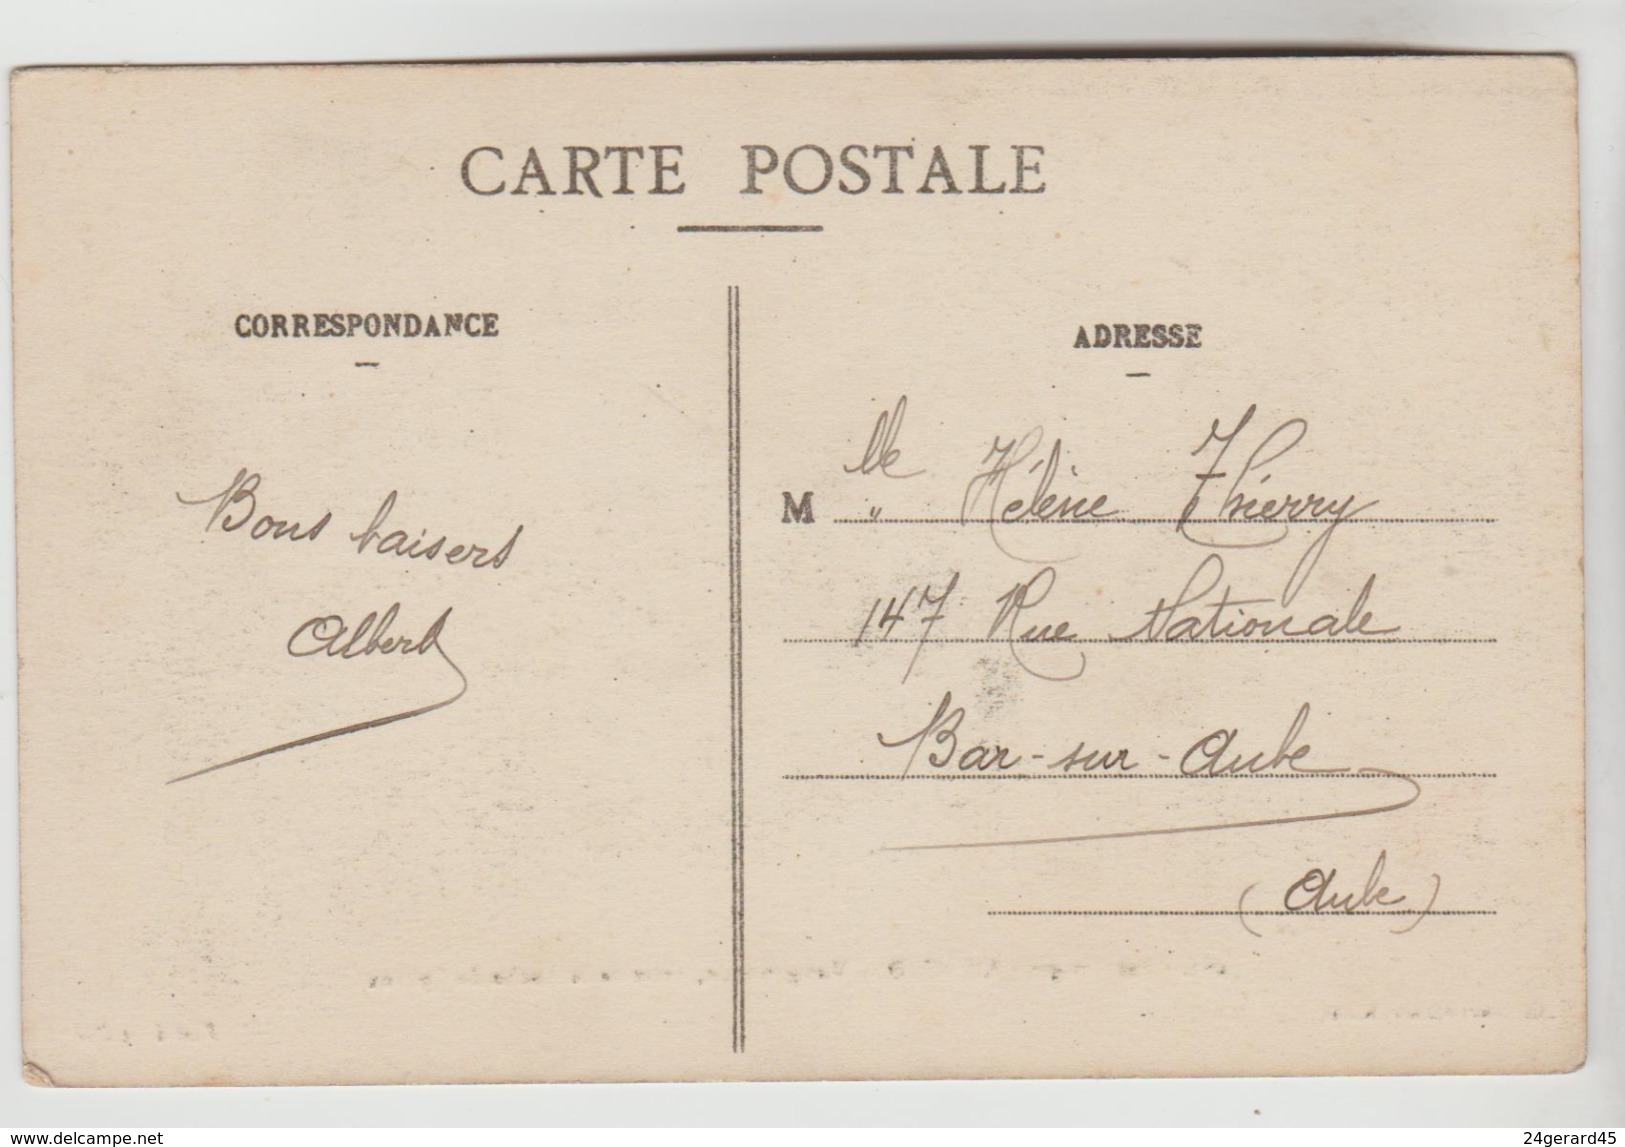 CARTE POSTALE
CORRESPONDANCE
ADRESSE
Bons baisers
Albert
Mlle Hélène Thierry
147 Rue Nationale
Bar-sur-Aube
(Aube)
www.delcampe.net
24gerard45